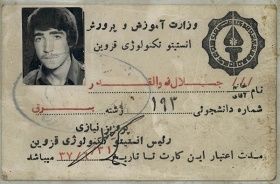 وزارت آموزش و پرورش
انستیتو تکنولوژی قزوین
نام آقای جلال ذوالقدر
خانم
شماره دانشجوئی ۱۹۳ رشته برق
پرویز نیازی
رئیس انستیتو تکنولوژی قزوین
مدت اعتبار این کارت تا تاریخ ۳۷/۰۶/۳۱ میباشد